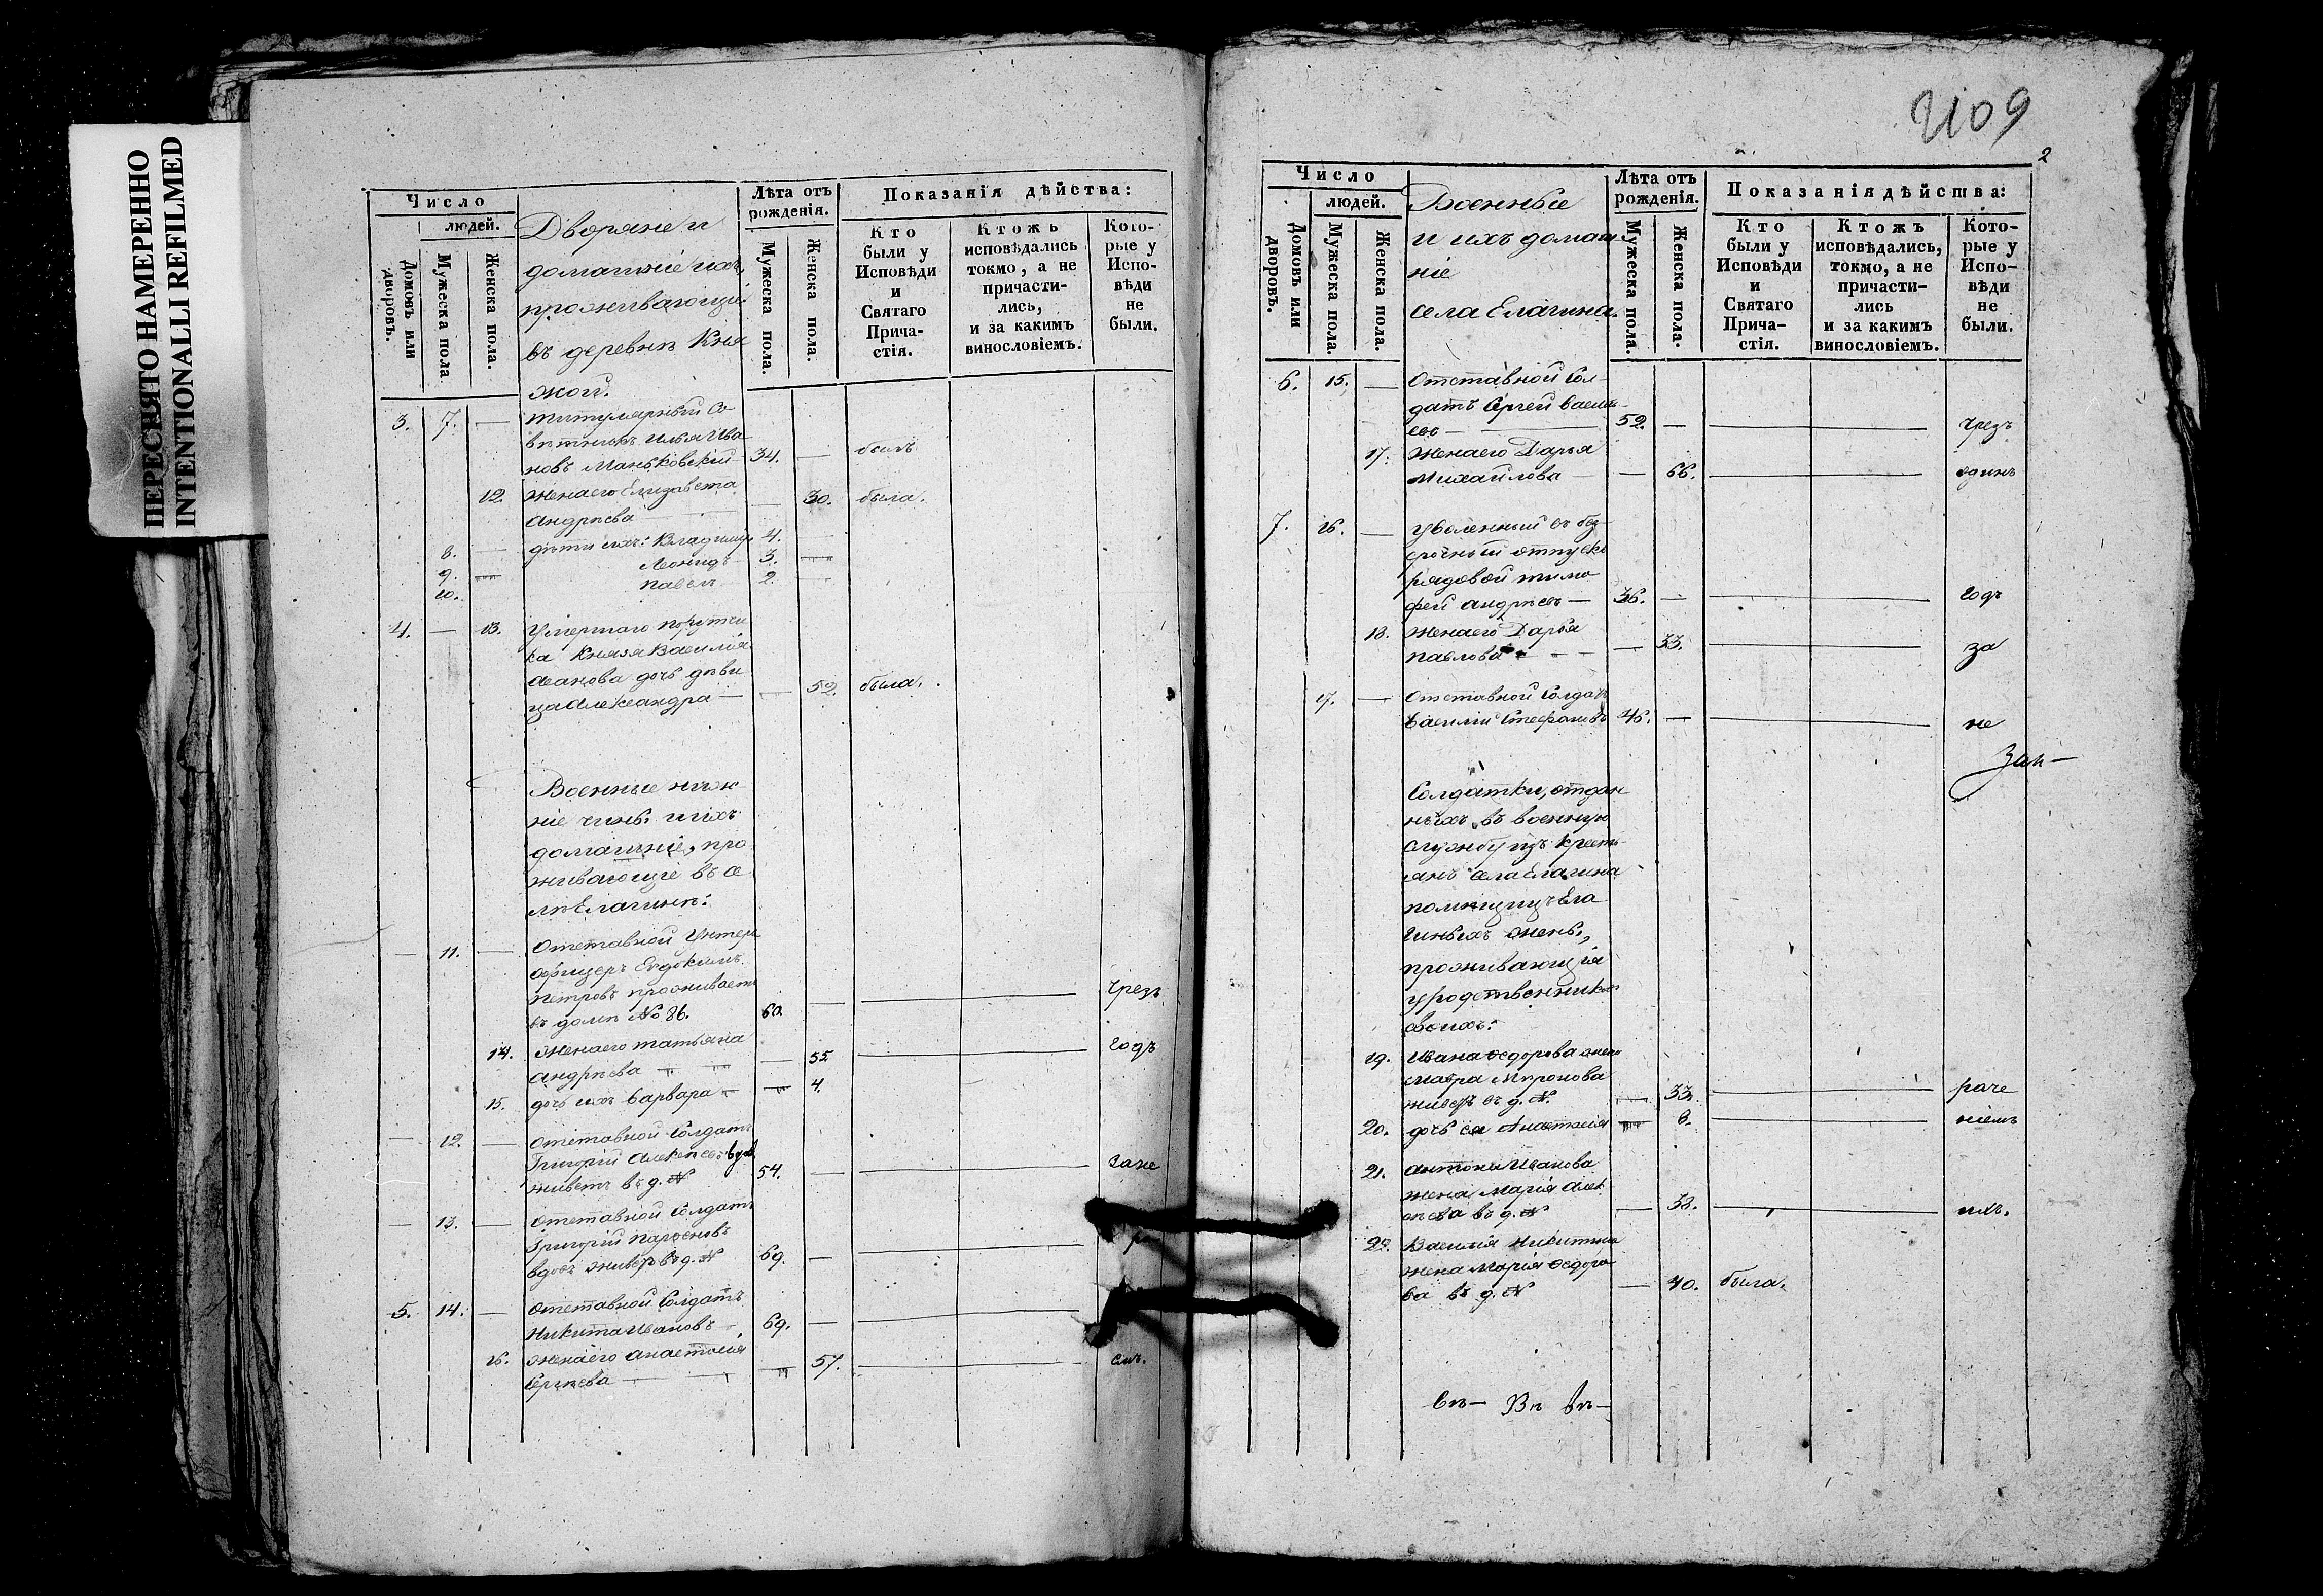 ПЕРЕСНЯТО НАМЕРЕННО
INTENTIONALLI REFILMED
Число
людей.
Домовъ или дворовъ.
Мужеска пола
Женска пола.
Дворяне и
домашніе ихъ,
проживающіе
въ деревнѣ Кня
жой.
Лѣта отъ
рожденія.
Мужеска пола.
Женска пола.
Показанія дѣйства:
Кто
были у
Исповѣди
и
Святаго
Прича-
стія.
Ктожъ
исповѣдались
токмо, а не
причасти-
лись,
и за какимъ
винословіемъ.
Кото-
рые у
Испо-
вѣди
не
были.
3. 7. — Титулярный Со
вѣтникъ Илья Ива
новъ Маньковскій 34. — былъ.
12. Жена его Елизавета
Андрѣева — 30. была.
8. — дѣти ихъ: Владимиръ 4. —
9. — Леонидъ 3. —
10. Павелъ 2. —
4. — 13. Умершаго Поручи
ка Князя Василія
Иванова дочь дѣви
ца Александра — — 52. была.
Военные ниж
ніе чины и ихъ
домашніе, про
живающіе въ се
лѣ Елагинѣ:
— 11. — Отставной Унтеръ
офицеръ Евдокимъ
Петровъ проживаетъ
въ домѣ № 86. 60. — — чрезъ
14. Жена его Татьяна
Андрѣева — — 55 — годъ
15. дочь ихъ Варвара — — 4.
— 12. — Отставной Солдатъ
Григорій Алексѣевъ вдов
живетъ въ д. № 54. — — за не
— 13. — Отставной Солдатъ
Григорій Парѳеновъ
вдовъ живетъ въ д. № 69. — — ра
5. 14. — Отставной Солдатъ
Никита Ивановъ — 69. — —
16. Жена его Анастасія
Сергѣева — — 57. — емъ.
2109
2
Число
людей.
Домовъ или дворовъ.
Мужеска пола.
Женска пола.
Военные
и ихъ домаш
ніе
села Елагина.
Лѣта отъ
рожденія.
Мужеска пола.
Женска пола.
Показанія дѣйства:
Кто
были у
Исповѣди
и
Святаго
Прича-
стія.
Ктожъ
исповѣдались,
токмо, а не
причасти-
лись
и за какимъ
винословіемъ.
Кото-
рые у
Испо-
вѣди
не
были.
6. 15. — Отставной Сол-
датъ Сергей Василь
евъ — 52. — — чрезъ
17. Жена его Дарья
Михайлова — — 66. — одинъ
7. 16. — Уволенный въ без
срочный отпускъ
рядовой Тимо
фей Андрѣевъ — 36. — — годъ
18. Жена его Дарья
Павлова — — 33. — за
17. — Отставной Солдатъ
Василій Стефановъ 46. — — не
Зам—
Солдатки, отдан
ныхъ въ военную
службу изъ кресть
янъ села Елагина
помѣщицъ Ела
гиныхъ жены,
проживающія
у родственниковъ
своихъ:
19. Ивана Ѳедорова жена
Мавра Миронова
живетъ въ д. №. — 33. — раче
20. дочь ея Анастасія — 8. — ніемъ
21. Антона Иванова
жена Марія Алек
сѣева въ д. № — 38. — ихъ.
22. Василія Никитина
жена Марія Ѳедоро
ва въ д. № — 40. была.